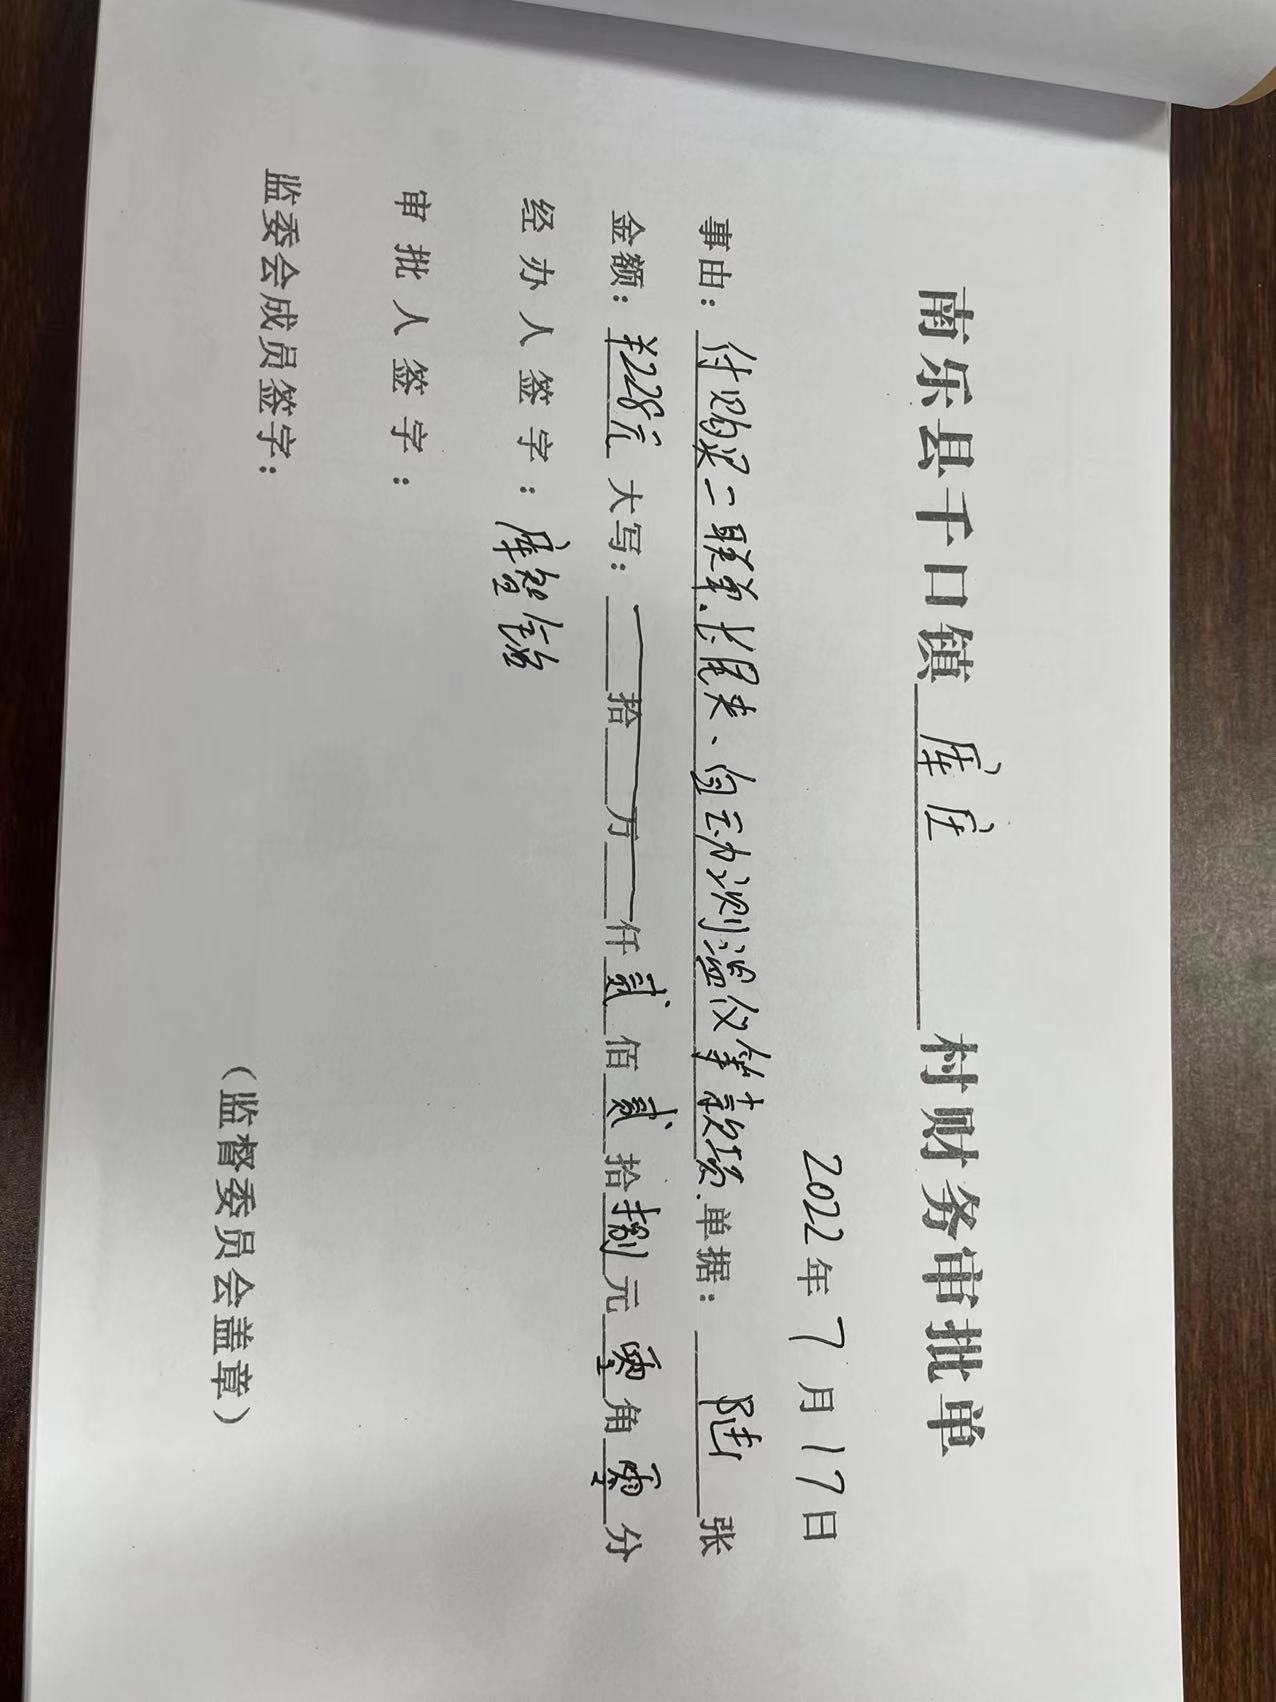 南乐县千口镇 库庄 村财务审批单
2022年7月17日
事由：付购买二联单、长尾夹、自动测温仪等款项.单据：陆张
金额：¥228元 大写： 拾 万 仟贰佰贰拾捌元零角零分
经办人签字：库智锋
审批人签字：
监委会成员签字：
（监督委员会盖章）